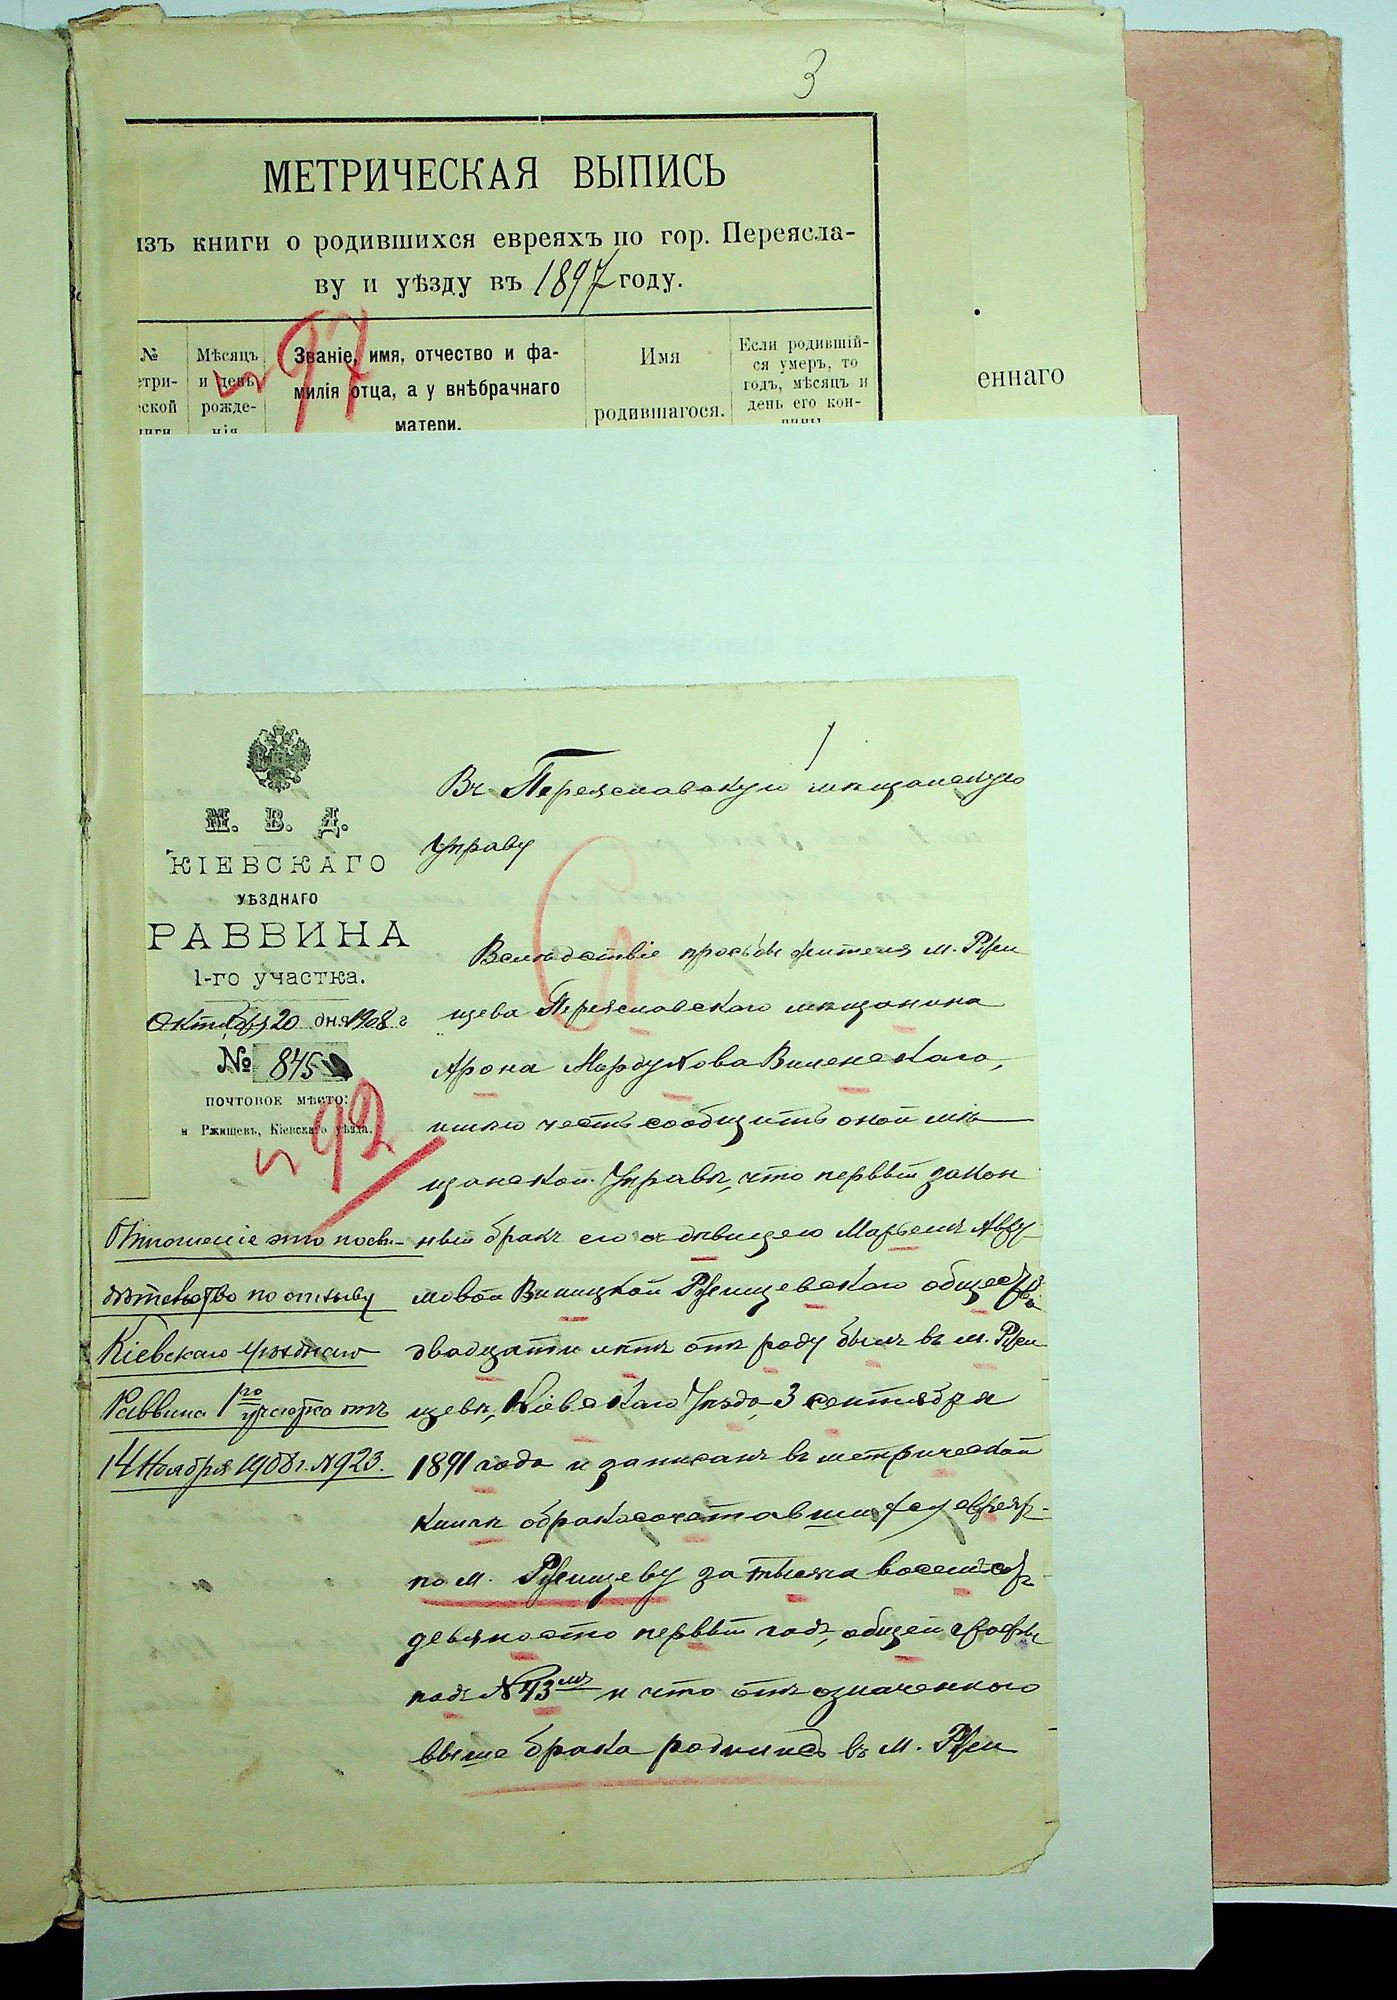 3
МЕТРИЧЕСКАЯ ВЫПИСЬ
изъ книги о родившихся евреяхъ по гор. Переясла-
ву и уѣзду въ 1897 году.
97
№
етри-
ской
ниги
Мѣсяцъ
и день
рожде-
нія
Званіе, имя, отчество и фа-
милія отца, а у внѣбрачнаго
матери.
Имя
родившагося.
Если родившій-
ся умеръ, то
годъ, мѣсяцъ и
день его кон-
чины
еннаго
М. В. Д.
КІЕВСКАГО
УѢЗДНАГО
РАВВИНА
1-го участка.
Октября 20 дня 1908 г
№ 845
ПОЧТОВОЕ МѢСТО:
м Ржищевъ, Кіевскаго уѣзда.
92
Отношеніе это
по отзыву
Кіевскаго уѣзднаго
Раввина 1го участка отъ
14 Ноября 1908 г. №923.
1
Въ Переяславскую мѣщанскую
Управу
Вслѣдствіе просьбы жителя м. Ржи
щева Переяславскаго мѣщанина
Арона Мордукова Виленскаго,
имѣю честь сообщить оной мѣ
щанской Управѣ, что первый закон
ный бракъ его съ дѣвицею Марьемъ Авру-
мовой Виницкой Ржищевскаго общества
двадцати лѣтъ отъ роду былъ въ м. Ржи
щевѣ, Кіевскаго Уѣзда, 3 сентября
1891 года и записанъ въ метрической
книгѣ о бракосочетавшихся евреяхъ
по м. Ржищеву за тысяча восемьсотъ
девяносто первый годъ, общей графы
подъ №43мъ и что отъ означеннаго
выше брака родились въ м. Ржи